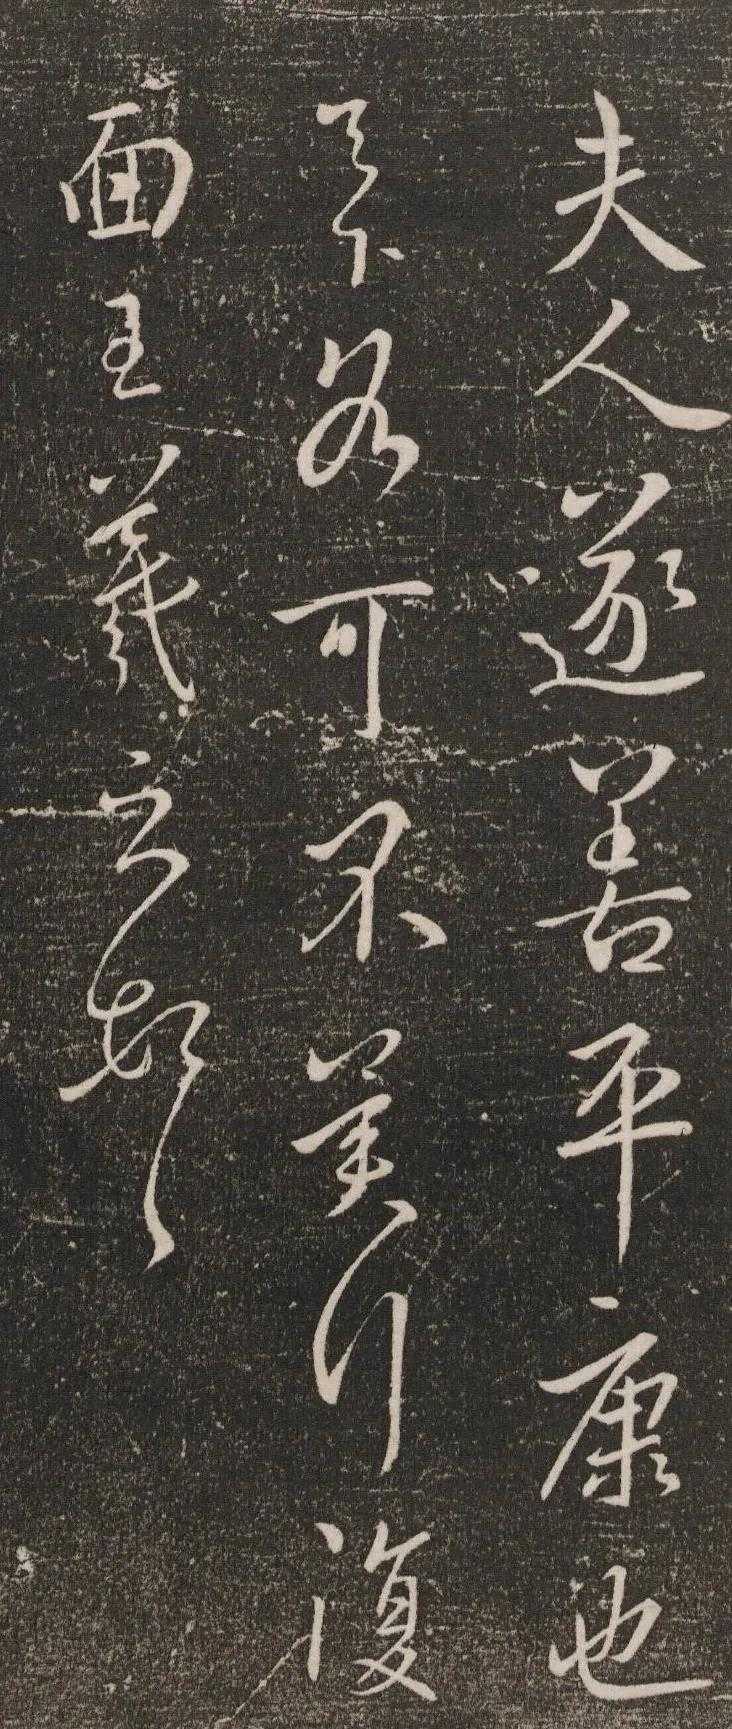 夫人遂善平康也
足下各可不冀行復
面王羲之頓首